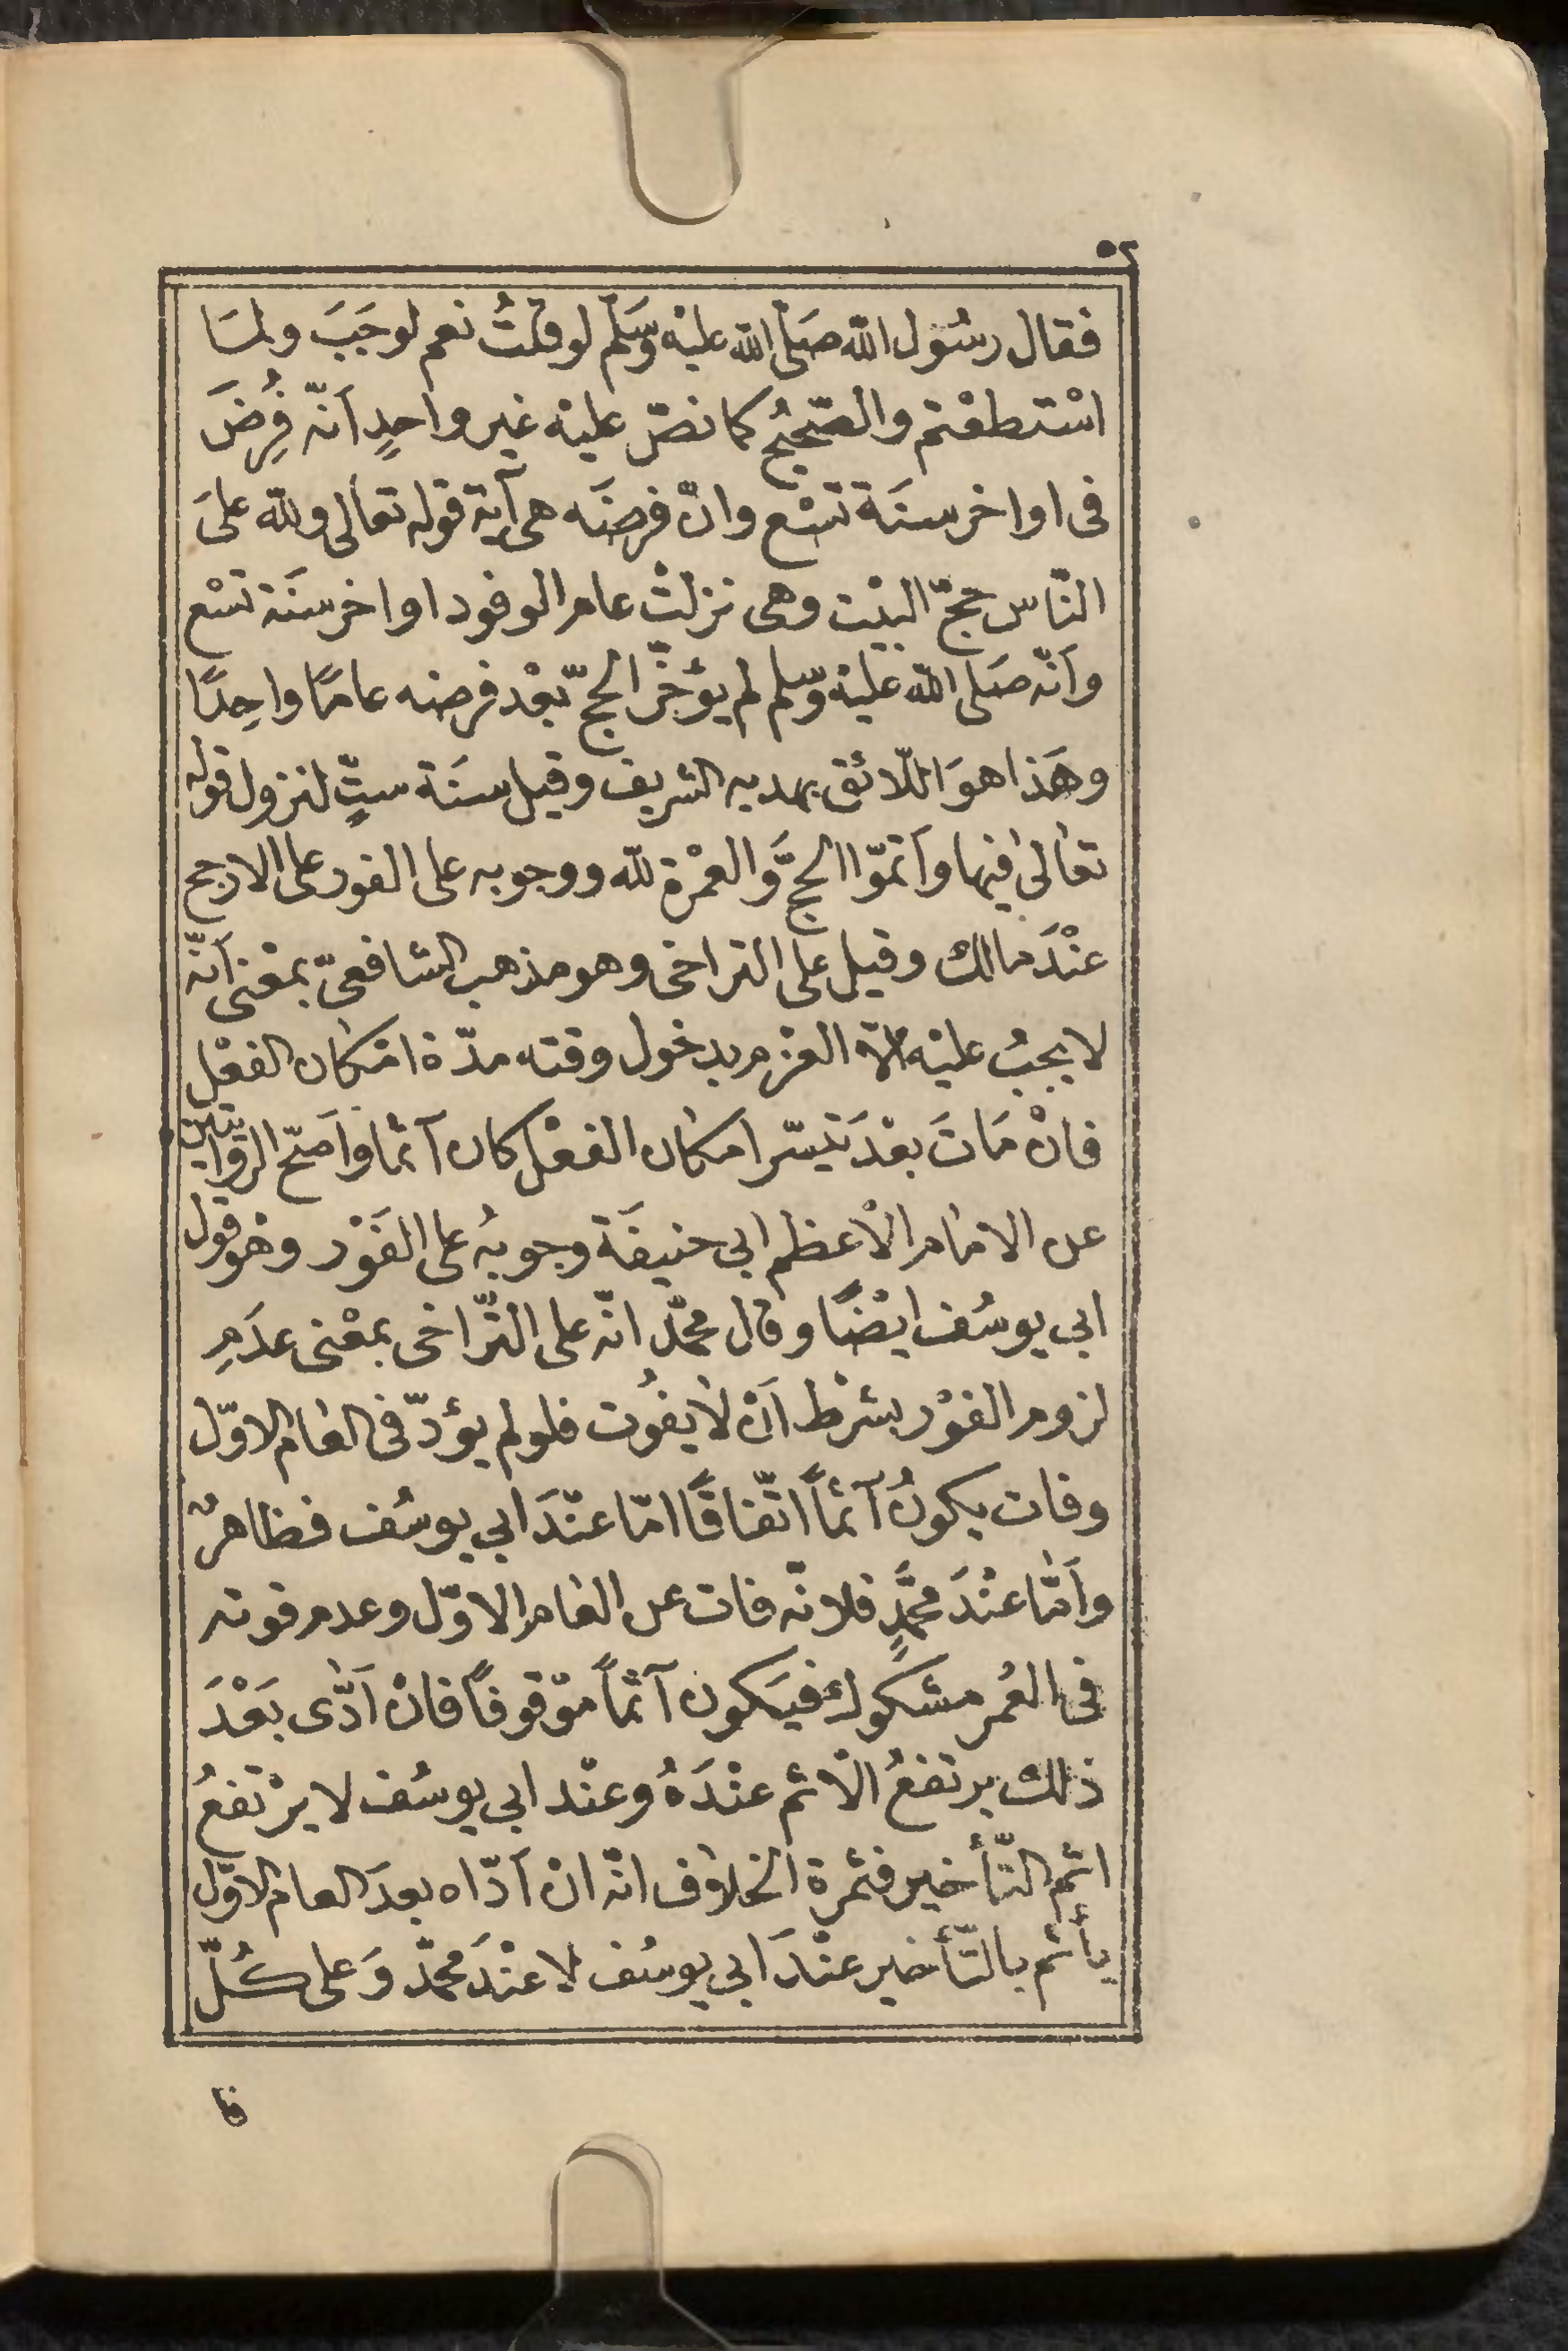 ٥٢
فقال رسُول الله صَلّى الله عليْه وَسَلّم لو قلتُ نعم لوجَبَ ولمَا
اسْتطعْتم والصّحيحُ كما نصّ عليْه غير واحدٍ اَنّه فُرِضَ
فى اواخر سنَة تسْع وانّ فرضَه هى آية قوله تعالى ولله علىَ
النّاس حجّ البيْت وهى نزلتْ عام الوفود اواخر سنَة تسْع
واَنّه صَلى الله عليْه وسّلم لم يؤخّر الحجّ بعْد فرضه عامًا واحِدًا
وهَذا هوَ اللّائق بهديه الشريف وقيل سنَة ستٍّ لنزول قوله
تعالىٰ فيها واَتمّوا الحجَّ وَالعمْرة لله ووجوبه على الفور على الارجح
عنْدَ مالك وقيل على التراخى وهو مذهب الشافعىّ بمعْنى اَنّه
لا يجبُ عليْه الّا العزم بدخول وقته مدّة امْكان الفعْل
فانْ مَاتَ بعْدَ تيَسّر امكان الفعْل كان آثما واَصَحّ الرّوايتين
عن الامَام الاْعظم ابى حنيفَة وجوبهُ على الفَوْر وهُو قول
ابى يوسُف ايْضًا وقال محمّد انّه على التّراخى بمعْنى عدَمِ
لزوم الفوْر بشرْط اَنْ لاٰ يفُوت فلو لم يؤدّ فى العَام الاوّل
وفات يكونُ آثماً اتّفاقًا امّا عنْدَ ابى يوسُف فظاهرٌ
واَمّا عنْدَ محمَّدٍ فلانّه فات عن العَام الاوّل وعدم فوته
فى العُمر مشكوك فيَكون آثماً موْقوفاً فانْ اَدّى بَعْدَ
ذلك يرتفعُ الاْثم عنْدَهُ وعنْد ابى يوسُف لا يرْتفعُ
اثم التّأخير فثمرة الخلاٰف انّه انْ اَدّاه بعدَ العام الاوّل
يأثم بالتّأخير عنْدَ ابى يوسُف لا عنْدَ محمّد وَعلى كُلّ
فا